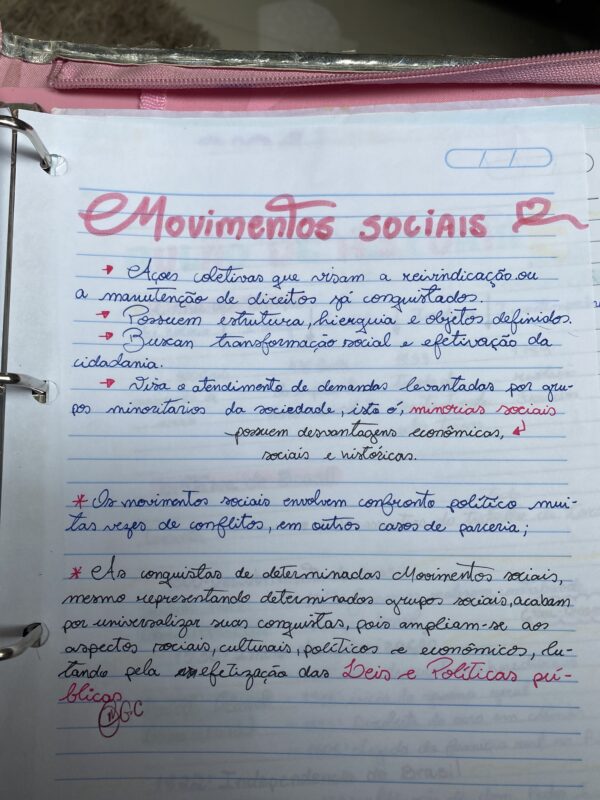 Movimentos sociais
→ Ações coletivas que visam a reivindicação ou
a manutenção de direitos já conquistados.
→ Possuem estrutura, hierquia e objetos definidos.
→ Buscan transformação social e efetivação da
cidadania.
→ Visa o atendimento de demandas levantadas por gru-
pos minoritários da sociedade, isto é, minorias sociais
possuem desvantagens econômicas,
sociais e históricas.
* Os movimentos sociais envolvem confronto político mui-
tas vezes de conflitos, em outros casos de parceria;
* As conquistas de determinadas Movimentos sociais,
mesmo representando determinados grupos sociais, acabam
por universalizar suas conquistas, pois ampliam-se aos
aspectos sociais, culturais, políticos e econômicos, lu-
tando pela efetização das Leis e Políticas pú-
blicas
G.C